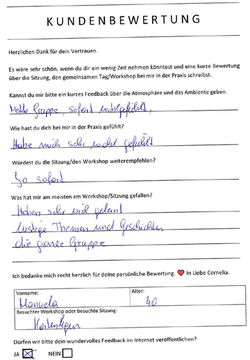 KUNDENBEWERTUNG
Herzlichen Dank für dein Vertrauen.
Es wäre sehr schön, wenn du dir ein wenig Zeit nehmen könntest und eine kurze Bewertung
über die Sitzung, den gemeinsamen Tag/Workshop bei mir in der Praxis schreibst.
Kannst du mir bitte ein kurzes Feedback über die Atmosphäre und das Ambiente geben.
Nette Gruppe, sofort wohlgefühlt,
Wie hast du dich bei mir in der Praxis gefühlt?
Habe mich sehr wohl gefühlt
Würdest du die Sitzung/den Workshop weiterempfehlen?
Ja sofort
Was hat mir am meisten am Workshop/Sitzung gefallen?
Haben sehr viel gelernt
lustige Themen und Geschichten
die ganze Gruppe
Ich bedanke mich recht herzlich für deine persönliche Bewertung. ❤ In Liebe Cornelia.
Vorname: Alter:
Manuela 40
Besuchter Workshop oder besuchte Sitzung:
Kartenlegen
Dürfen wir bitte dein wundervolles Feedback im Internet veröffentlichen?
JA ☒ NEIN ☐